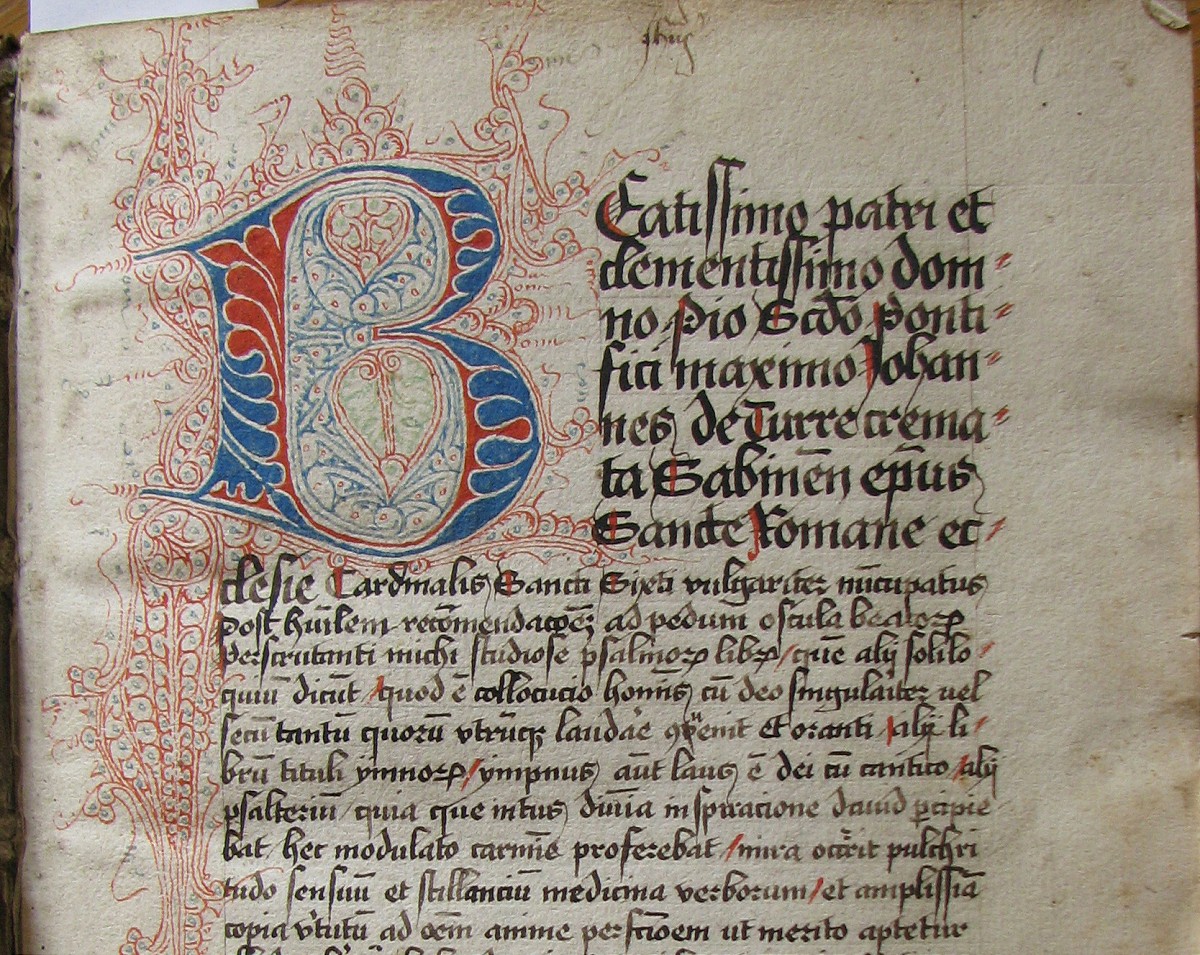 Jhus
Beatissimo patri et
clementissimo dom
no Pio Scdo Ponti
fici maximo Johan
nes de Turrecrema
ta Sabineñ ep̄us
Sancte Romane ec
clesie Cardinalis Sancti Sixti vulgariter nūcupatus
post hūilem recōmendac̄oeꝫ ad pedum oscula beatorꝝ
Perscrutanti michi studiose psalmorꝝ librꝝ / quē alij solilo
quiū dicūt / quod ē collocucio homīs cū deo singularit̄ uel
secū tantū quorū vtrūqꝫ laudāe ꝯuenit et oranti / alij li
brū tituli ymnorꝝ / ympnus aūt laus ē dei cū cantico / alij
psalteriū / quia que intus diuīa inspiracione dauid p̄cipie
bat / hec modulato carmīe proferebat / mira occ̄rit pulchri
tudo sensuū et stillanciū medicina verborum / et amplissīa
copia v̄tutū ad oēm anime perfc̄ioem ut merito aptetur